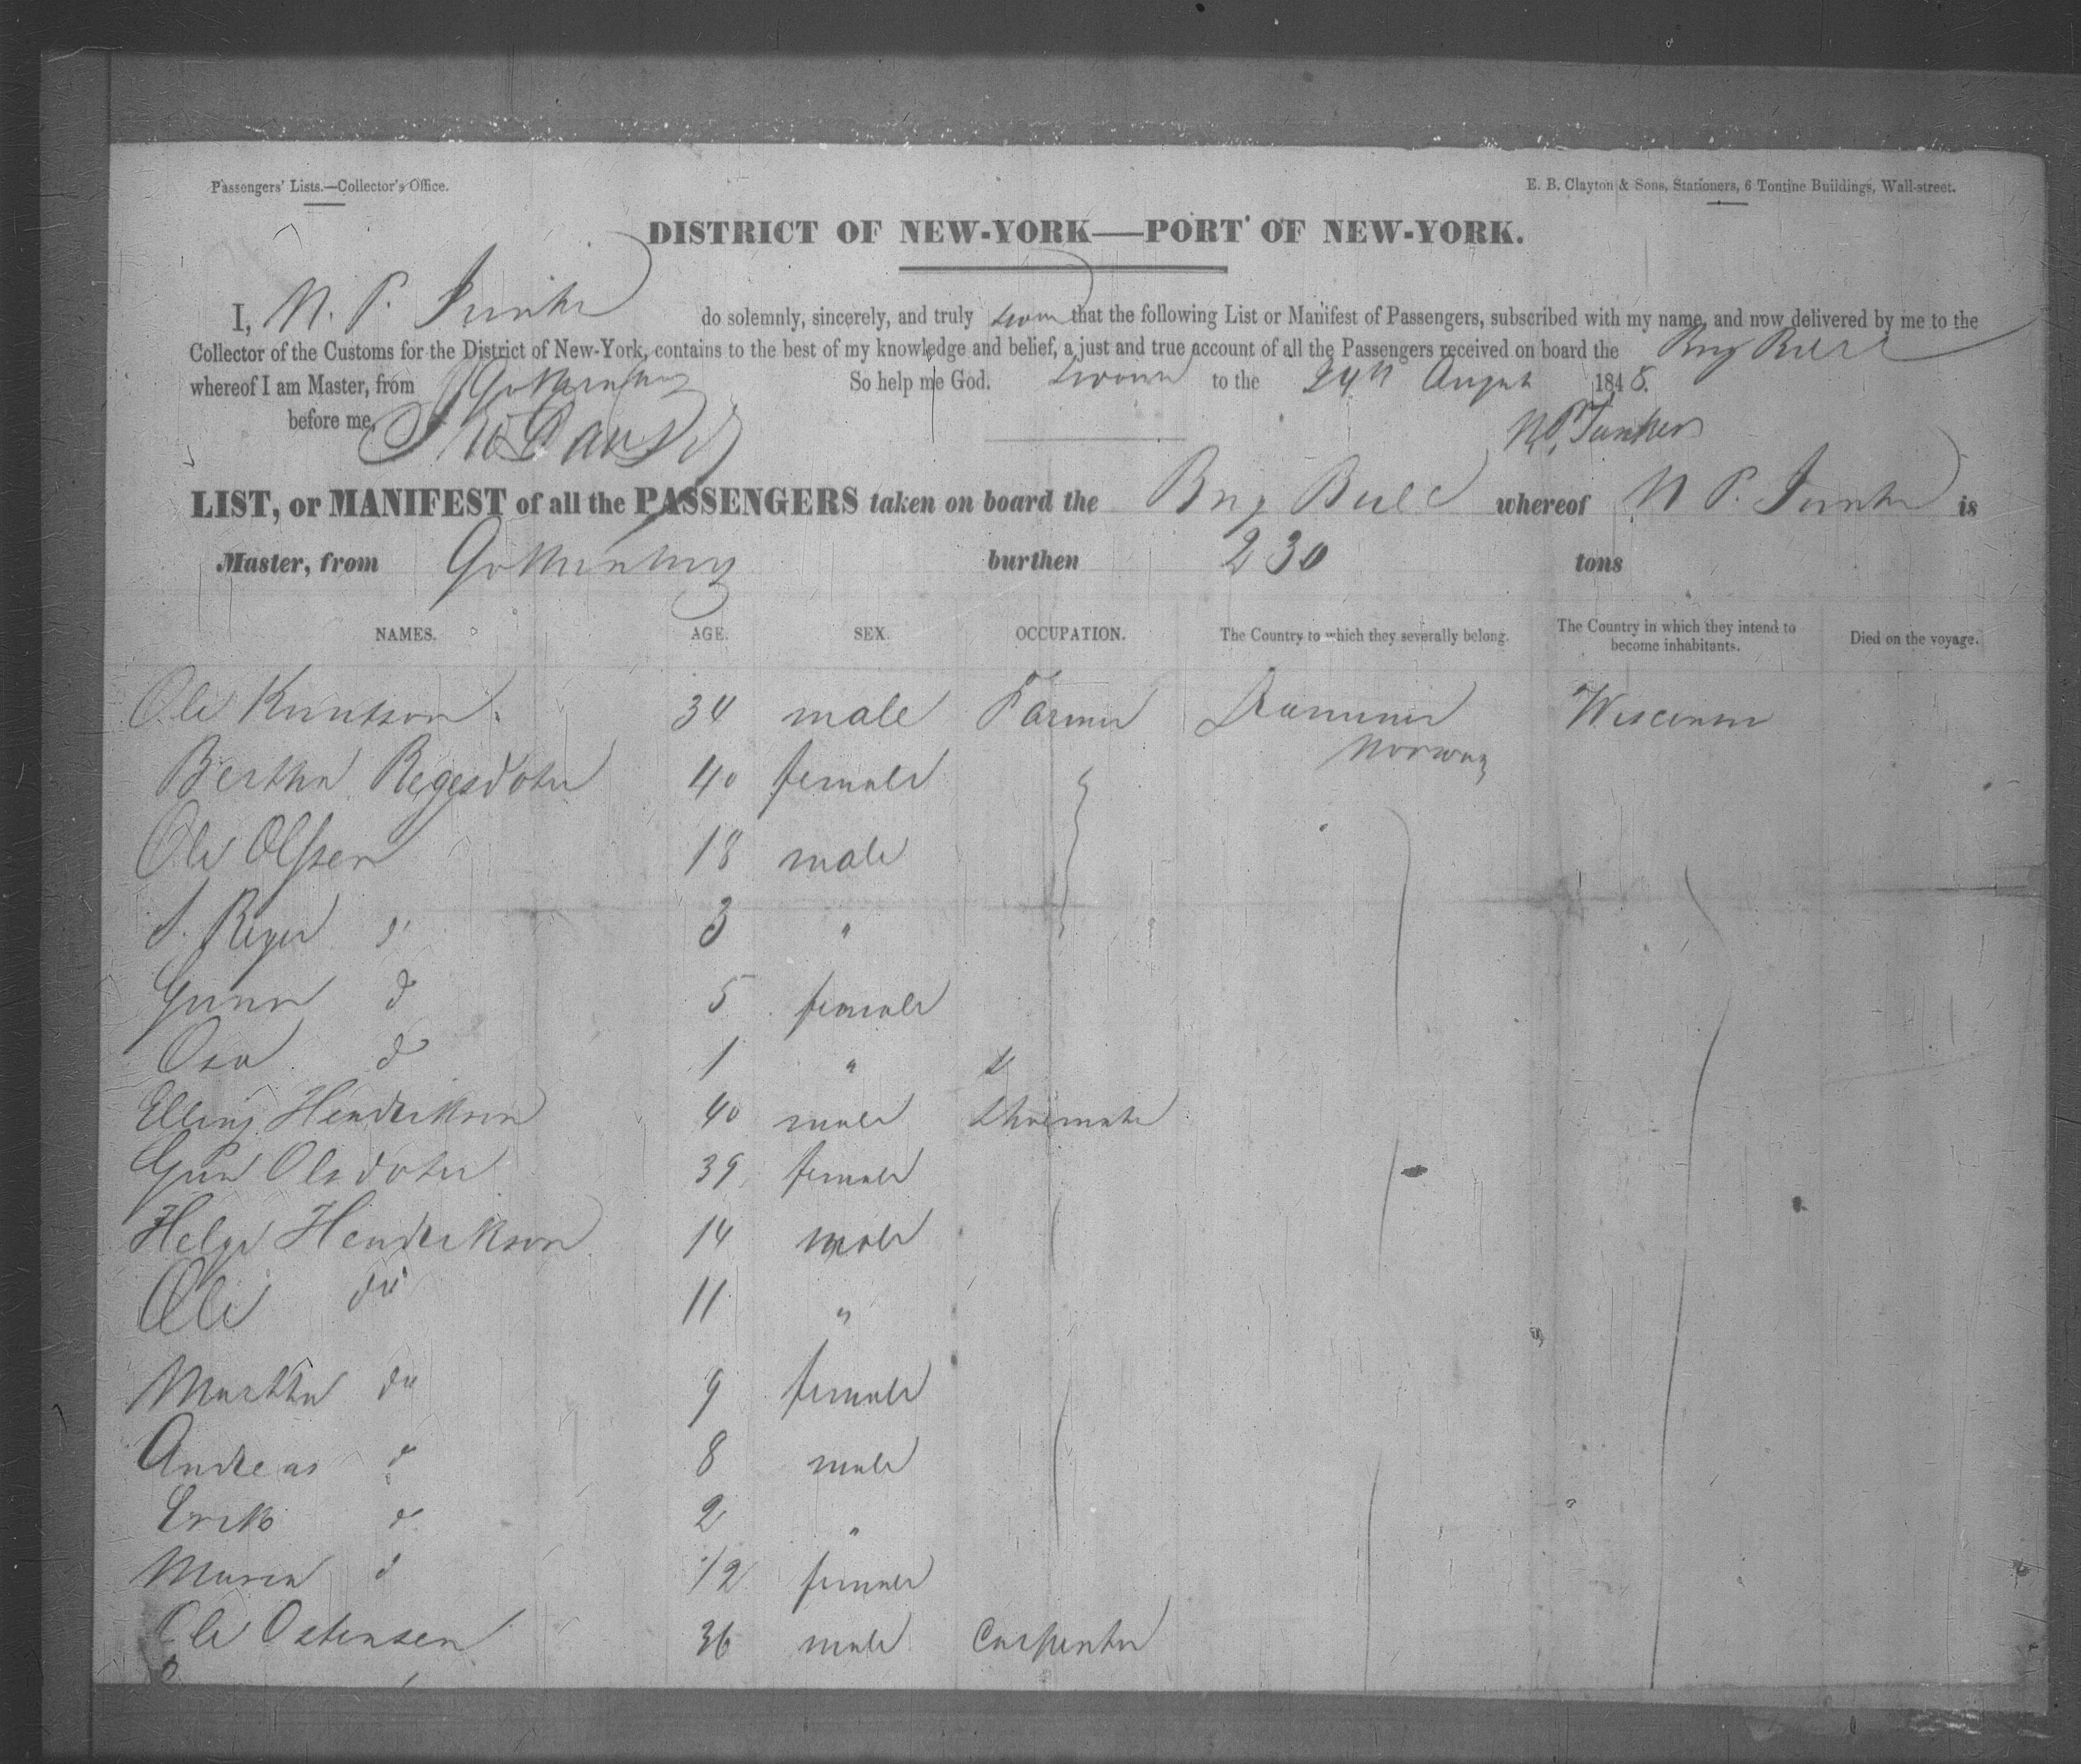 Passengers' Lists.—Collector's Office.
E. B. Clayton & Sons, Stationers, 6 Tontine Buildings, Wall-street.
DISTRICT OF NEW-YORK—PORT OF NEW-YORK.
I, N. P. Junker do solemnly, sincerely, and truly swear that the following List or Manifest of Passengers, subscribed with my name, and now delivered by me to the
Collector of the Customs for the District of New-York, contains to the best of my knowledge and belief, a just and true account of all the Passengers received on board the Brig
whereof I am Master, from Gothenburg So help me God. Sworn to the 24th August 1848.
before me,
N P. Junker
LIST, or MANIFEST of all the PASSENGERS taken on board the Brig whereof N P. Junker is
Master, from Gothenburg burthen 230 tons
NAMES. AGE. SEX. OCCUPATION. The Country to which they severally belong. The Country in which they intend to become inhabitants. Died on the voyage.
Ole Knutson 34 male Farmer Wisconsin
Norway
Bertha Regesdoter 40 female
Ole Olssen 18 male
Reger d° 3 "
Gunn d 5 female
Osa d 1 "
Elling Hendrikson 40 male Shoemaker
Gun Olsdoter 39 female
Helge Hendrikson 14 male
Ole do 11 "
Martha do 9 female
Andreas d 8 male
Erik d 2 "
Maren d 1/2 female
Ole Ostensen 36 male Carpenter